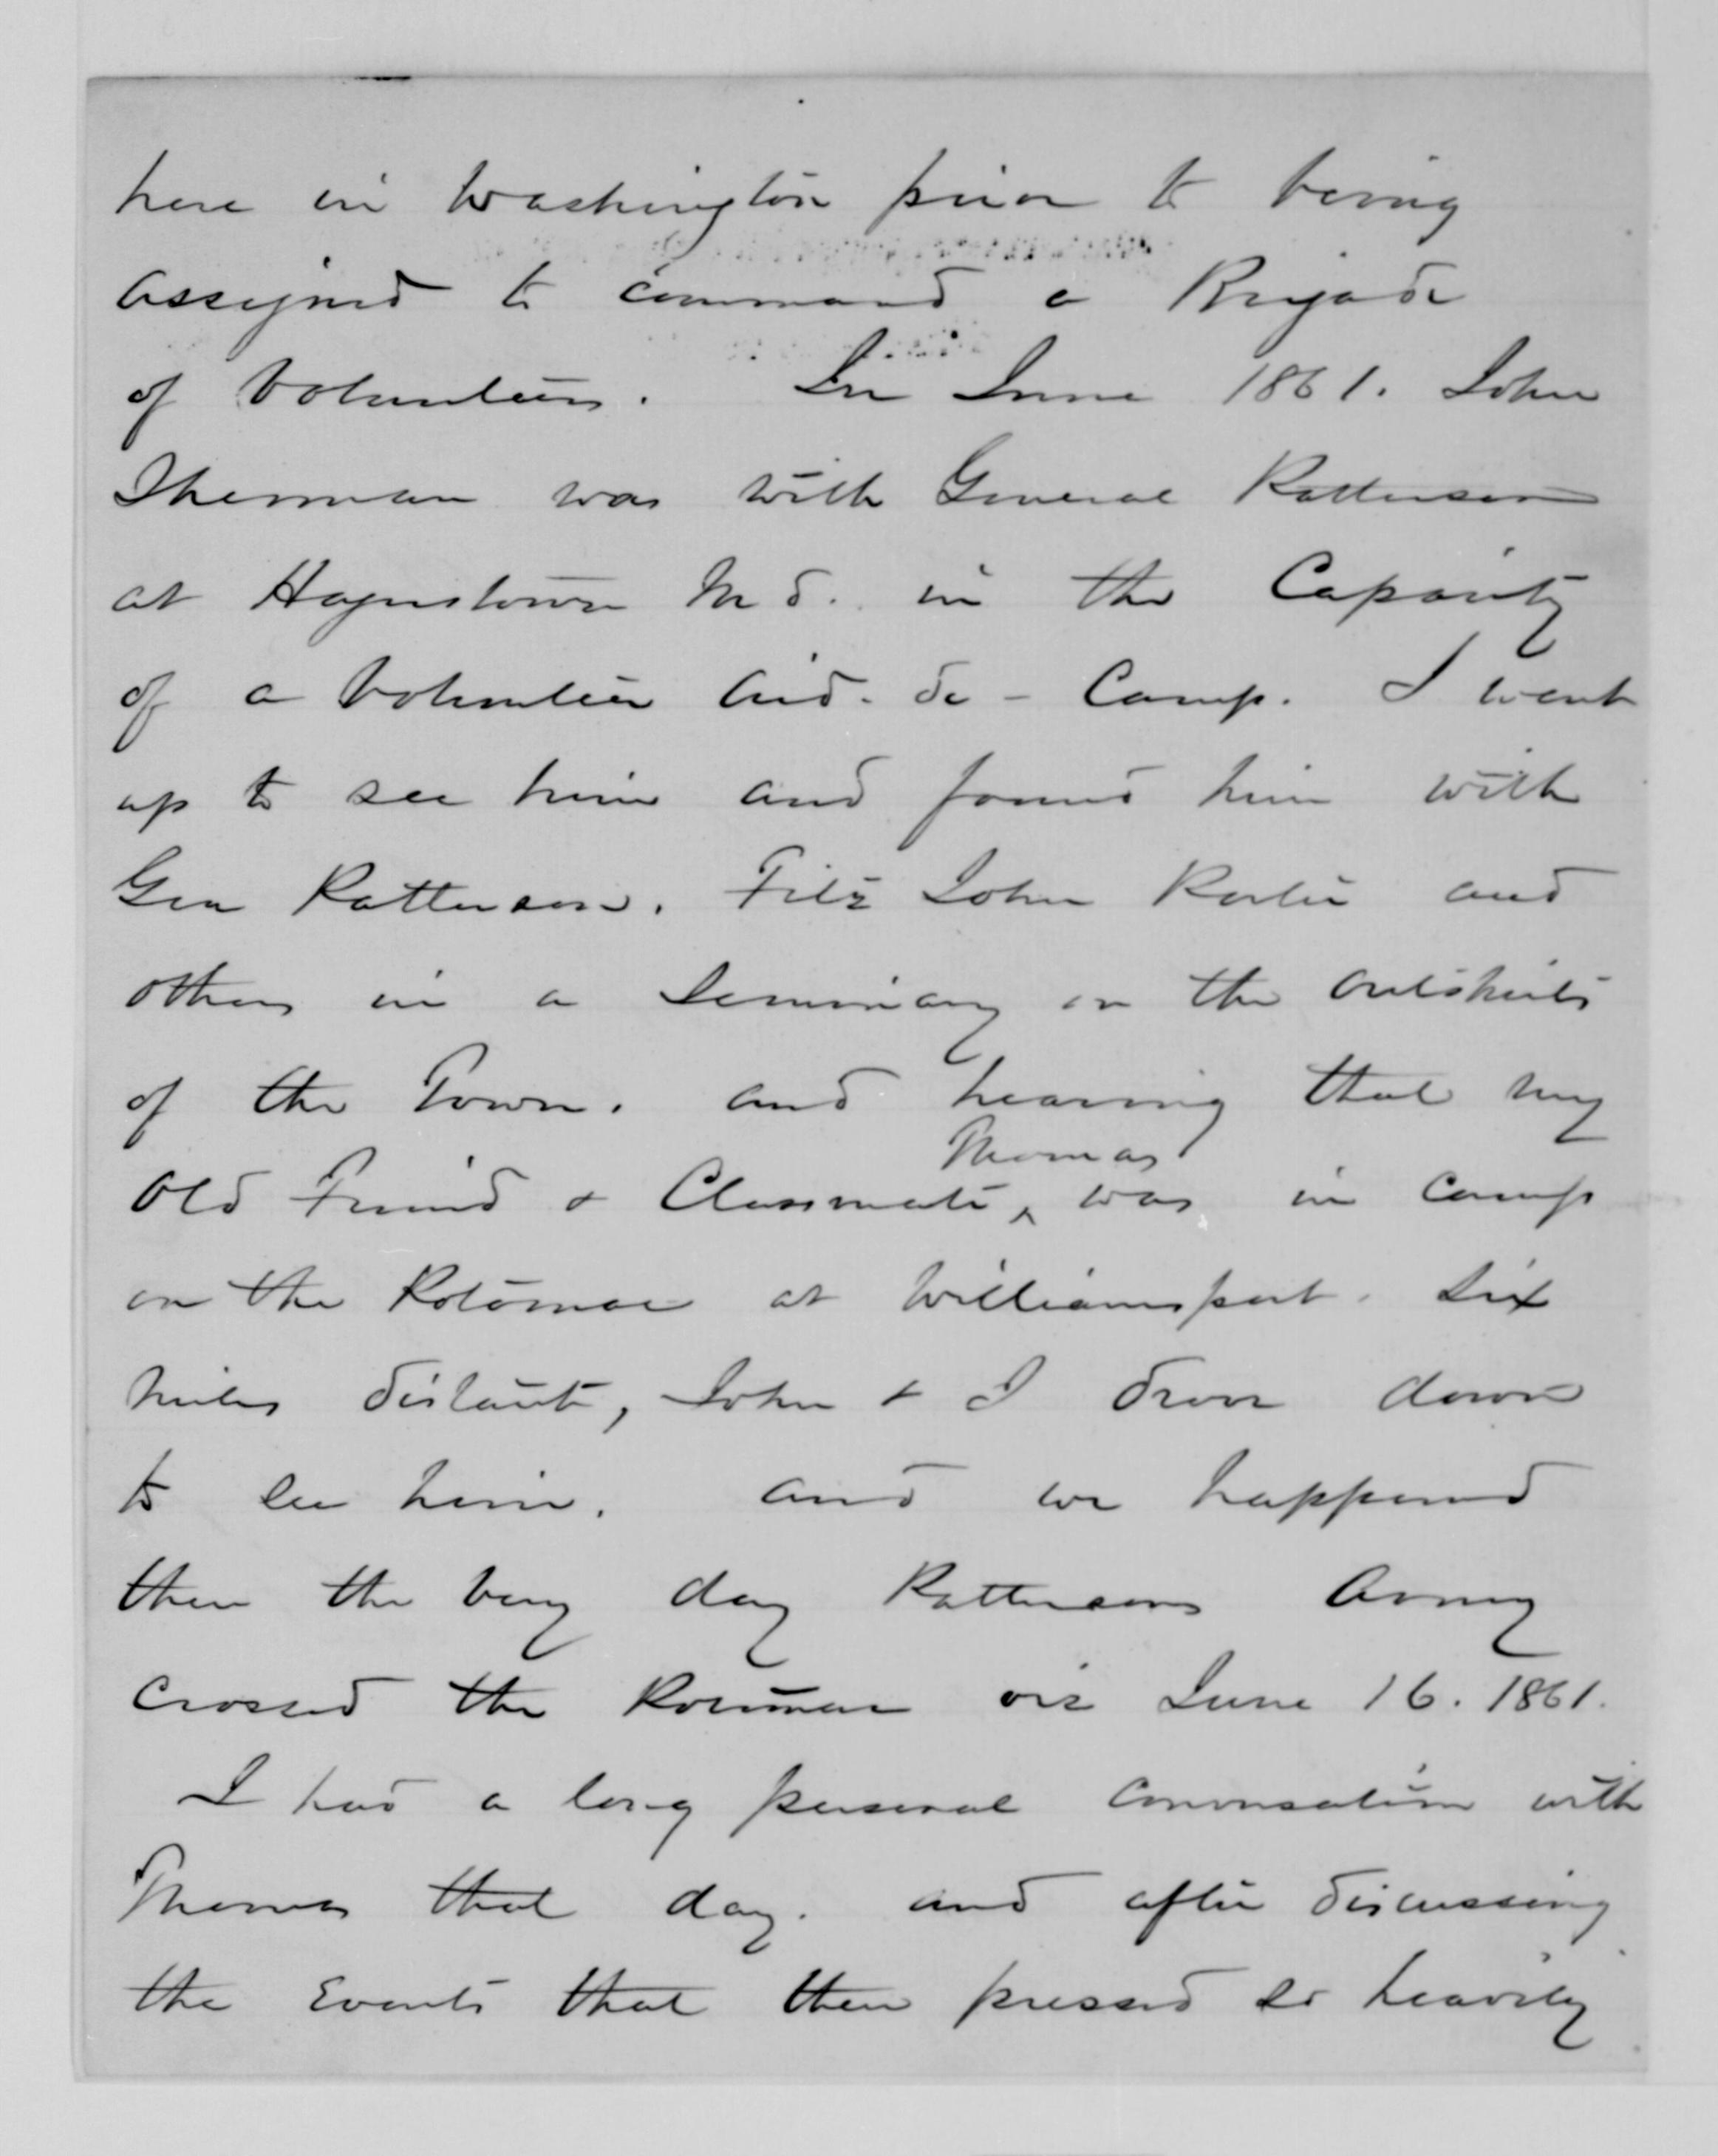 here in Washington prior to being
assigned to command a Brigade
of Volunteers. In June 1861. John
Sherman was with General Patterson
at Hagerstown Md. in the Capacity
of a Volunteer Aid-de-Camp. I went
up to see him and found him with
Gen Patterson. Fitz John Porter and
others in a Seminary on the outskirts
of the Town. and hearing that my
Thomas
Old Friend & Classmate, ^ was in camp
on the Potomac at Williamsport. Six
miles distant, John & I drove down
to see him. and we happened
there the very day Pattersons Army
crossed the Potomac viz June 16. 1861.
I had a long personal conversation with
Thomas that day. and after discussing
the Events that then pressed so heavily